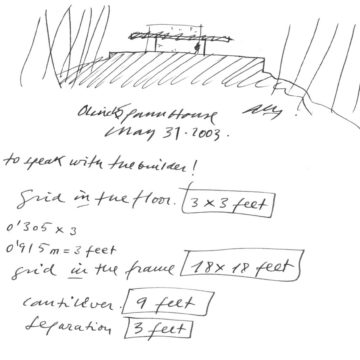 Olnick Spanu House
May 31. 2003.
to speak with the builder!
grid in the floor. 3 x 3 feet
0'305 x 3
0'915 m = 3 feet
grid in the frame 18 x 18 feet
cantilever. 9 feet
separation 3 feet